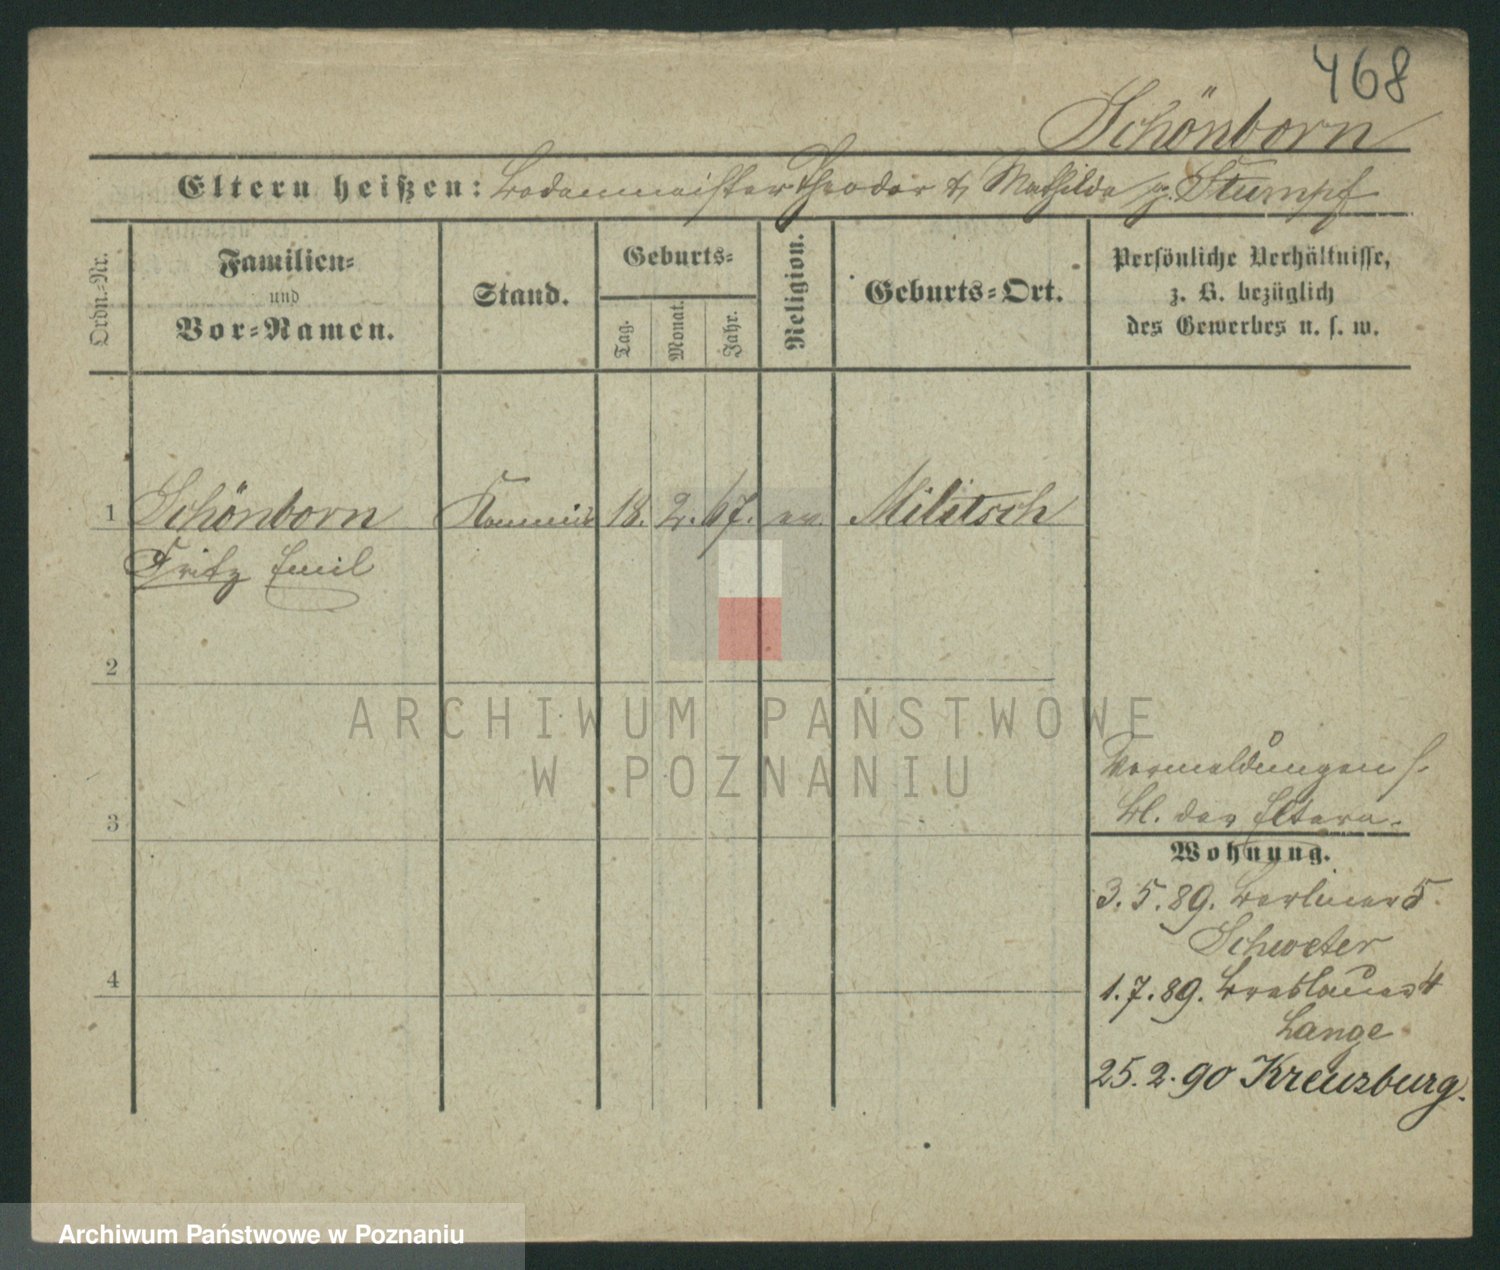 468
Schönborn
Eltern heißen: Bodenmeister Theodor & Mathilde g. Stumpf
Ordn.-Nr.
Familien-
und
Vor-Namen.
Stand.
Geburts-
Tag.
Monat.
Jahr.
Religion.
Geburts-Ort.
Persönliche Verhältnisse,
z. B. bezüglich
des Gewerbes u. s. w.
1 Schönborn Kommis 18. 2. 67. ev. Militsch
Fritz Emil
2
ARCHIWUM PAŃSTWOWE
W POZNANIU
Vormeldungen s.
Bl. der Eltern.
3
Wohnung.
3.5.89. Berliner 5
Schweter
4
1.7.89. Breslauer 4
Lange
25.2.90 Kreuzburg.
Archiwum Państwowe w Poznaniu